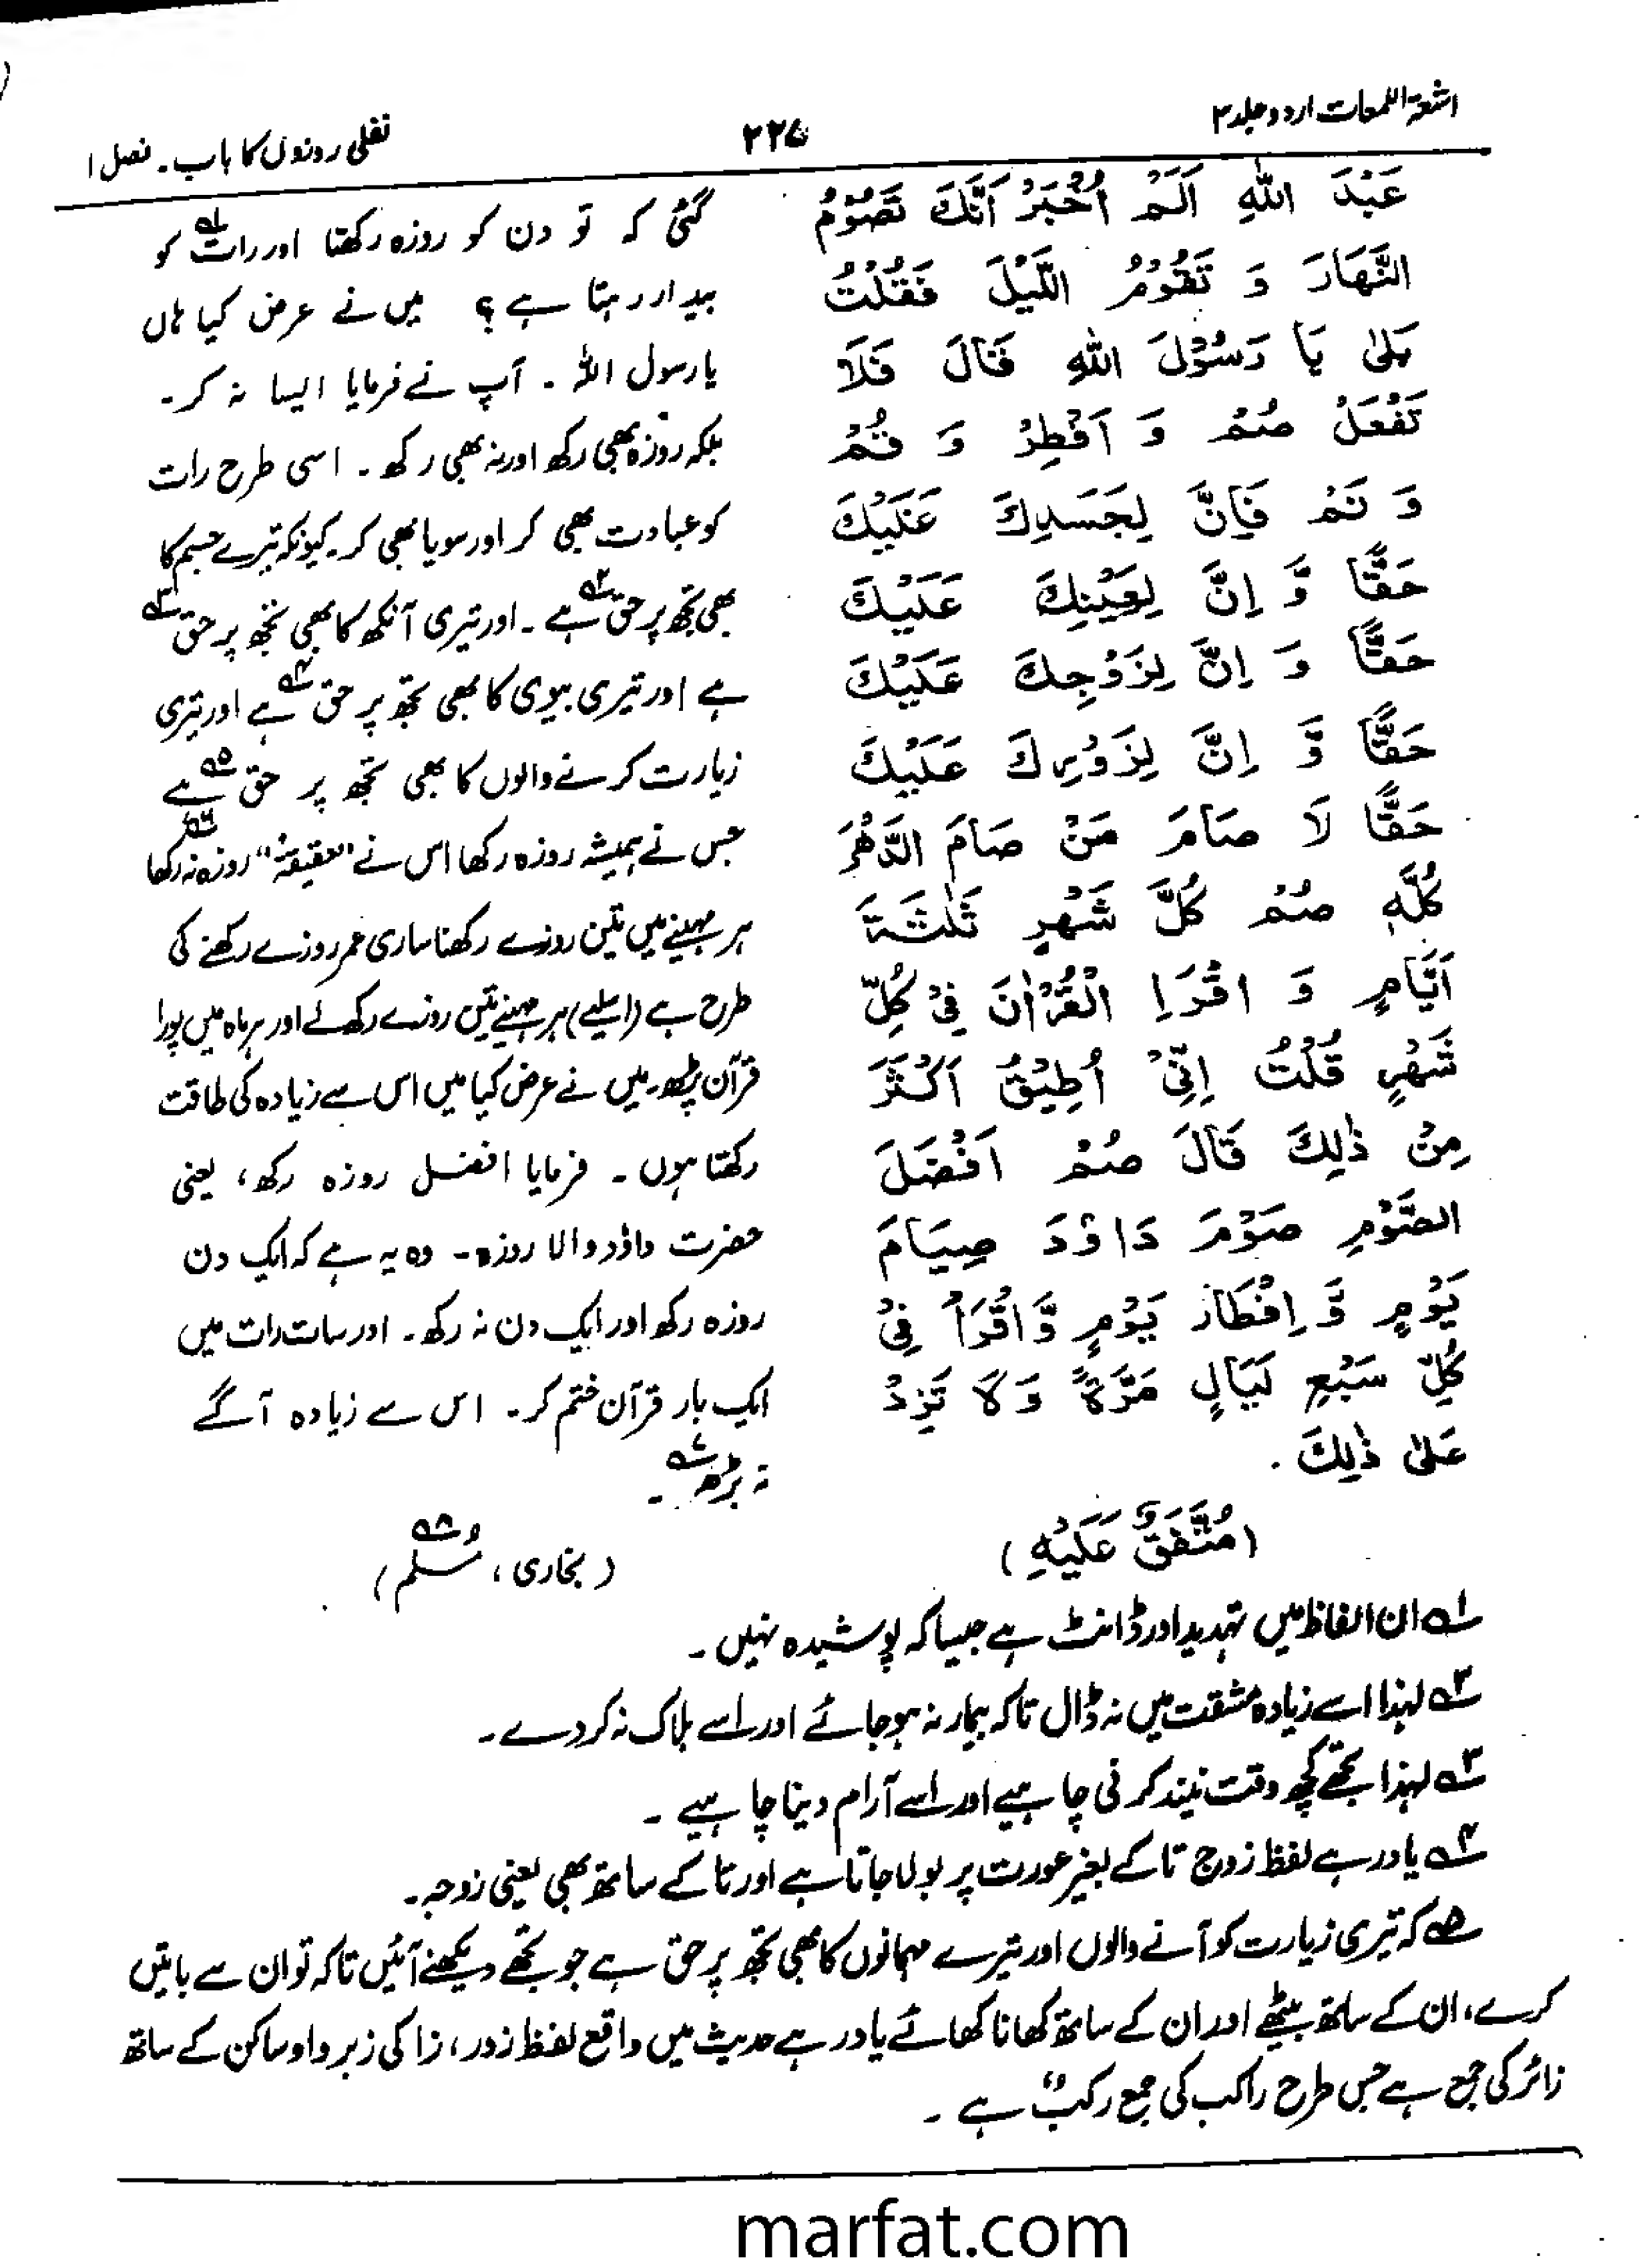 اشعۃ اللمعات اردو جلد ۳
۲۲۵
نفلی روزوں کا باب۔ فصل ۱
عَبْدَ اللّٰهِ اَلَمْ اُخْبَرْ اَنَّكَ تَصُوْمُ
النَّهَارَ وَ تَقُوْمُ اللَّيْلَ فَقُلْتُ
بَلٰى يَا رَسُوْلَ اللّٰهِ قَالَ فَلَا
تَفْعَلْ صُمْ وَ اَفْطِرْ وَ قُمْ
وَ نَمْ فَاِنَّ لِجَسَدِكَ عَلَيْكَ
حَقًّا وَّ اِنَّ لِعَيْنِكَ عَلَيْكَ
حَقًّا وَ اِنَّ لِزَوْجِكَ عَلَيْكَ
حَقًّا وَّ اِنَّ لِزَوْرِكَ عَلَيْكَ
حَقًّا لَا صَامَ مَنْ صَامَ الدَّهْرَ
كُلَّهٖ صُمْ كُلَّ شَهْرٍ ثَلٰثَةَ
اَيَّامٍ وَ اقْرَاِ الْقُرْاٰنَ فِيْ كُلِّ
شَهْرٍ قُلْتُ اِنِّيْ اُطِيْقُ اَكْثَرَ
مِنْ ذٰلِكَ قَالَ صُمْ اَفْضَلَ
الصَّوْمِ صَوْمَ دَاوٗدَ صِيَامَ
يَوْمٍ وَّ اِفْطَارَ يَوْمٍ وَّاقْرَأْ فِيْ
كُلِّ سَبْعِ لَيَالٍ مَرَّةً وَلَا تَزِدْ
عَلٰى ذٰلِكَ .
(مُتَّفَقٌ عَلَيْهِ)
گئی کہ تو دن کو روزہ رکھتا اور رات ۱ کو
بیدار رہتا ہے؟ میں نے عرض کیا ہاں
یا رسول اللہ ۔ آپ نے فرمایا ایسا نہ کر۔
بلکہ روزہ بھی رکھ اور نہ بھی رکھ ۔ اسی طرح رات
کو عبادت بھی کر اور سویا بھی کر۔ کیونکہ تیرے جسم کا
بھی تجھ پر حق ۲ ہے ۔ اور تیری آنکھ کا بھی تجھ پر حق ۳
ہے اور تیری بیوی کا بھی تجھ پر حق ۴ ہے اور تیری
زیارت کرنے والوں کا بھی تجھ پر حق ۵ ہے
جس نے ہمیشہ روزہ رکھا اس نے "حقیقۃً" روزہ نہ رکھا ۶
ہر مہینے میں تین روزے رکھنا ساری عمر روزے رکھنے کی
طرح ہے (اسلیے) ہر مہینے تین روزے رکھ لے اور ہر ماہ میں پورا
قرآن پڑھ۔ میں نے عرض کیا میں اس سے زیادہ کی طاقت
رکھتا ہوں ۔ فرمایا افضل روزہ رکھ، یعنی
حضرت داؤد والا روزہ۔ وہ یہ ہے کہ ایک دن
روزہ رکھ اور ایک دن نہ رکھ ۔ اور سات رات میں
ایک بار قرآن ختم کر ۔ اس سے زیادہ آگے
نہ بڑھ ۷ ۔
(بخاری، مُسلم ۸)
۱ ان الفاظ میں تہدید اور ڈانٹ ہے جیسا کہ پوشیدہ نہیں ۔
۲ لہٰذا اسے زیادہ مشقت میں نہ ڈال تاکہ بیمار نہ ہو جائے اور اسے ہلاک نہ کر دے ۔
۳ لہٰذا تجھے کچھ وقت نیند کرنی چاہیے اور اسے آرام دینا چاہیے ۔
۴ یاد رہے لفظ زوج تا کے بغیر عورت پر بولا جاتا ہے اور تا کے ساتھ بھی یعنی زوجہ ۔
۵ کہ تیری زیارت کو آنے والوں اور تیرے مہمانوں کا بھی تجھ پر حق ہے جو تجھے دیکھنے آئیں تاکہ تو ان سے باتیں
کرے، ان کے ساتھ بیٹھے اور ان کے ساتھ کھانا کھائے یاد رہے حدیث میں واقع لفظ زور، زا کی زبر واو ساکن کے ساتھ
زائر کی جمع ہے جس طرح راکب کی جمع رکبٌ ہے ۔
marfat.com